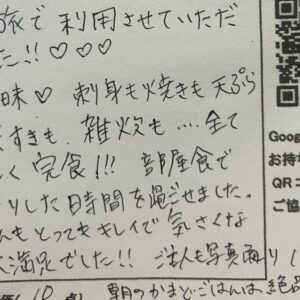 旅で利用させていただ
た!! ♡♡♡
味♡ 刺身も焼きも天ぷら
すきも、雑炊も…全て
く完食!!! 部屋食で
りした時間を過ごせました。
んもとってもキレイで気さくな
大満足でした!! ご主人も写真通り
10点
朝のかまどごはんは絶品
Goog
お持ち
QRコ
ご協